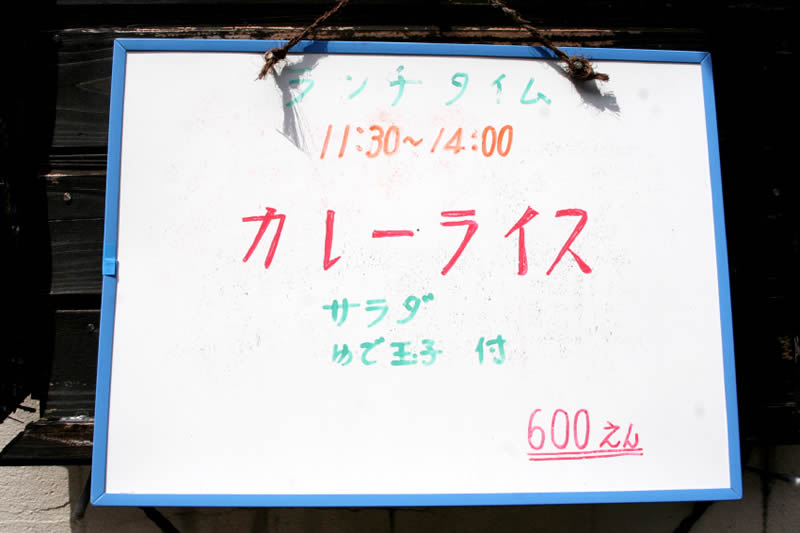 ランチタイム
11:30~14:00
カレーライス
サラダ
ゆで玉子 付
600えん